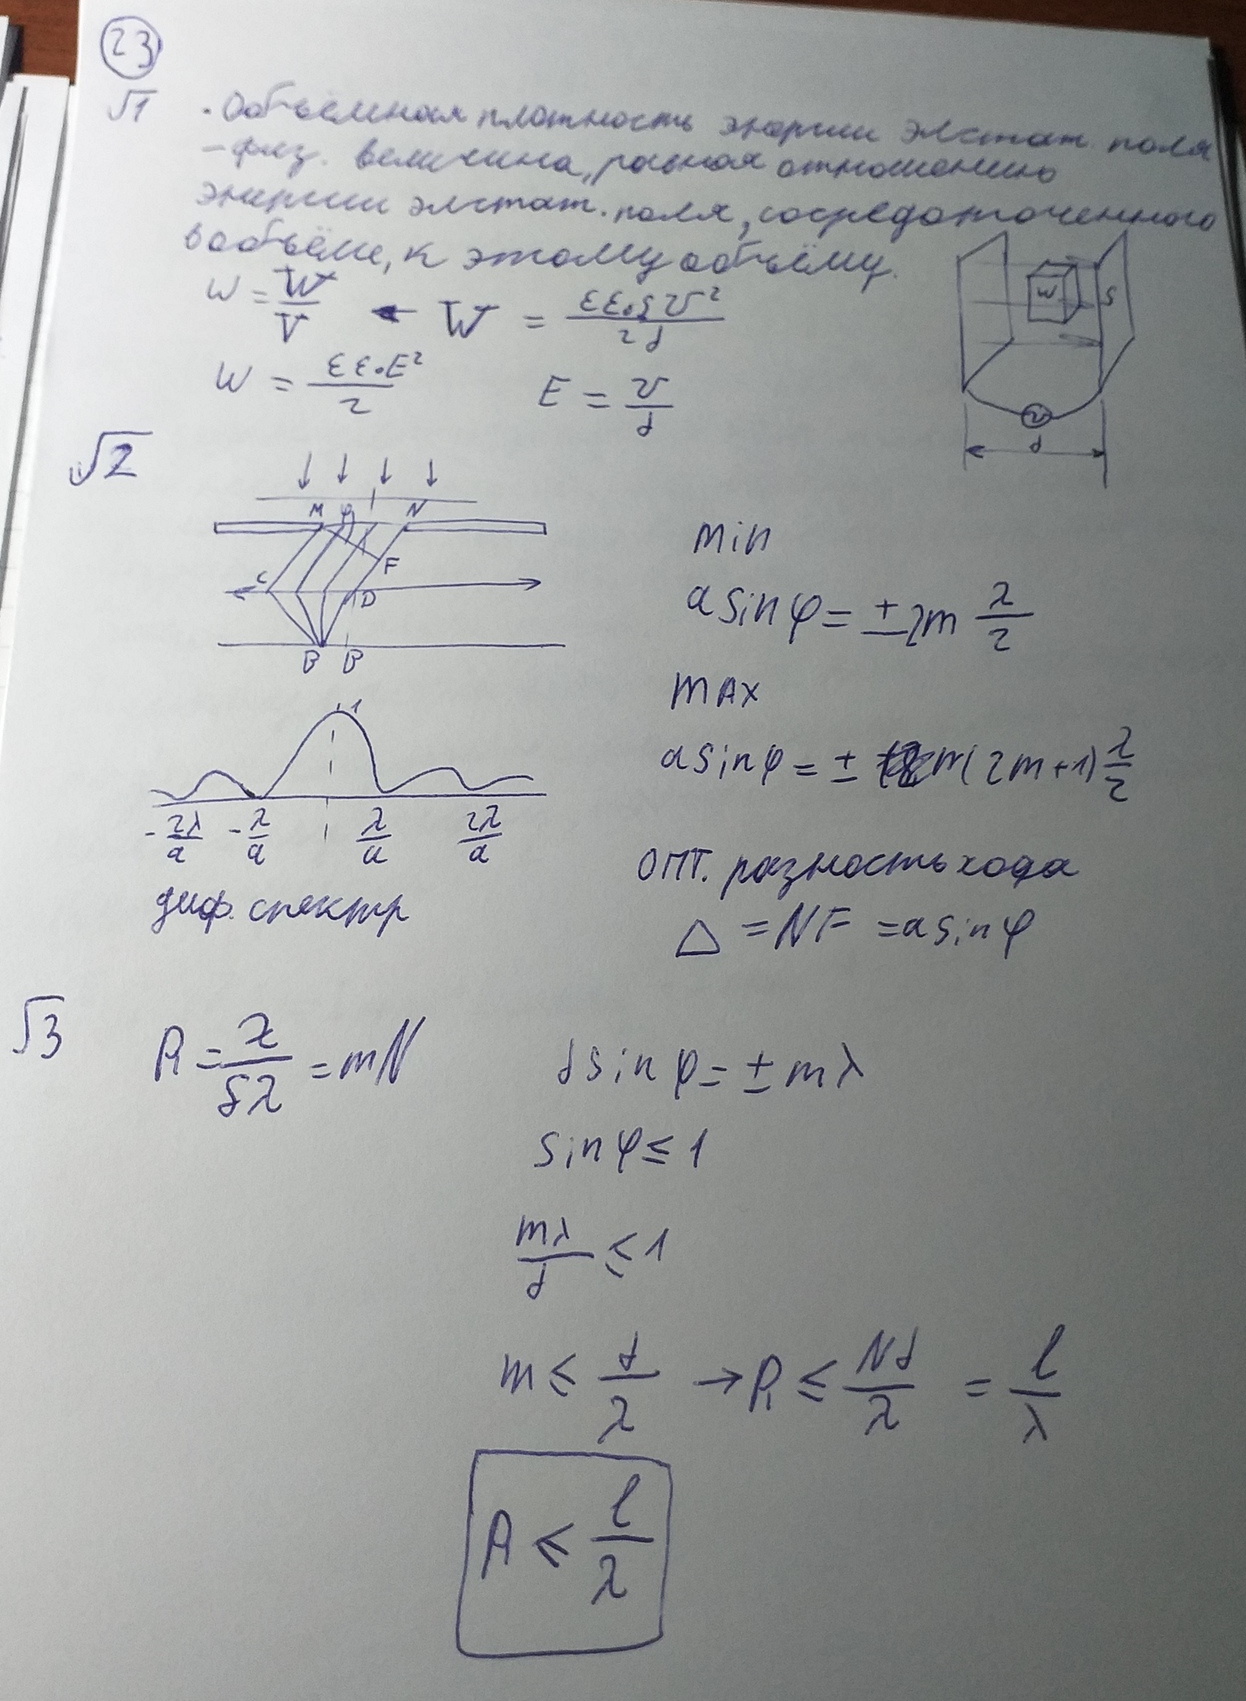 23
√1 · Объёмная плотность энергии элстат. поля
– физ. величина, равная отношению
энергии элстат. поля, сосредоточенного
в объёме, к этому объёму.
w = W/V ← W = εε₀SU²/2d
w = εε₀E²/2 E = U/d
W S
U
d
√2
M φ N
C F
D
B B
1
-2λ/a -λ/a λ/a 2λ/a
диф. спектр
min
a sin φ = ± 2m λ/2
max
a sin φ = ± m(2m+1) λ/2
опт. разность хода
Δ = NF = a sin φ
√3
R = λ/δλ = mN
d sin φ = ± mλ
sin φ ≤ 1
mλ/d ≤ 1
m ≤ d/λ → R ≤ Nd/λ = l/λ
R ≤ l/λ